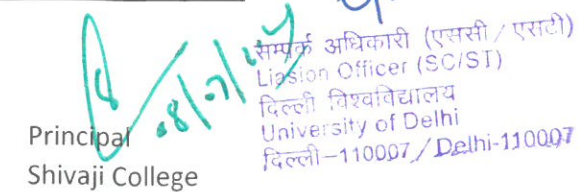 सम्पर्क अधिकारी (एससी / एसटी)
Liasion Officer (SC/ST)
दिल्ली विश्वविद्यालय
University of Delhi
दिल्ली-110007 / Delhi-110007
Principal
Shivaji College